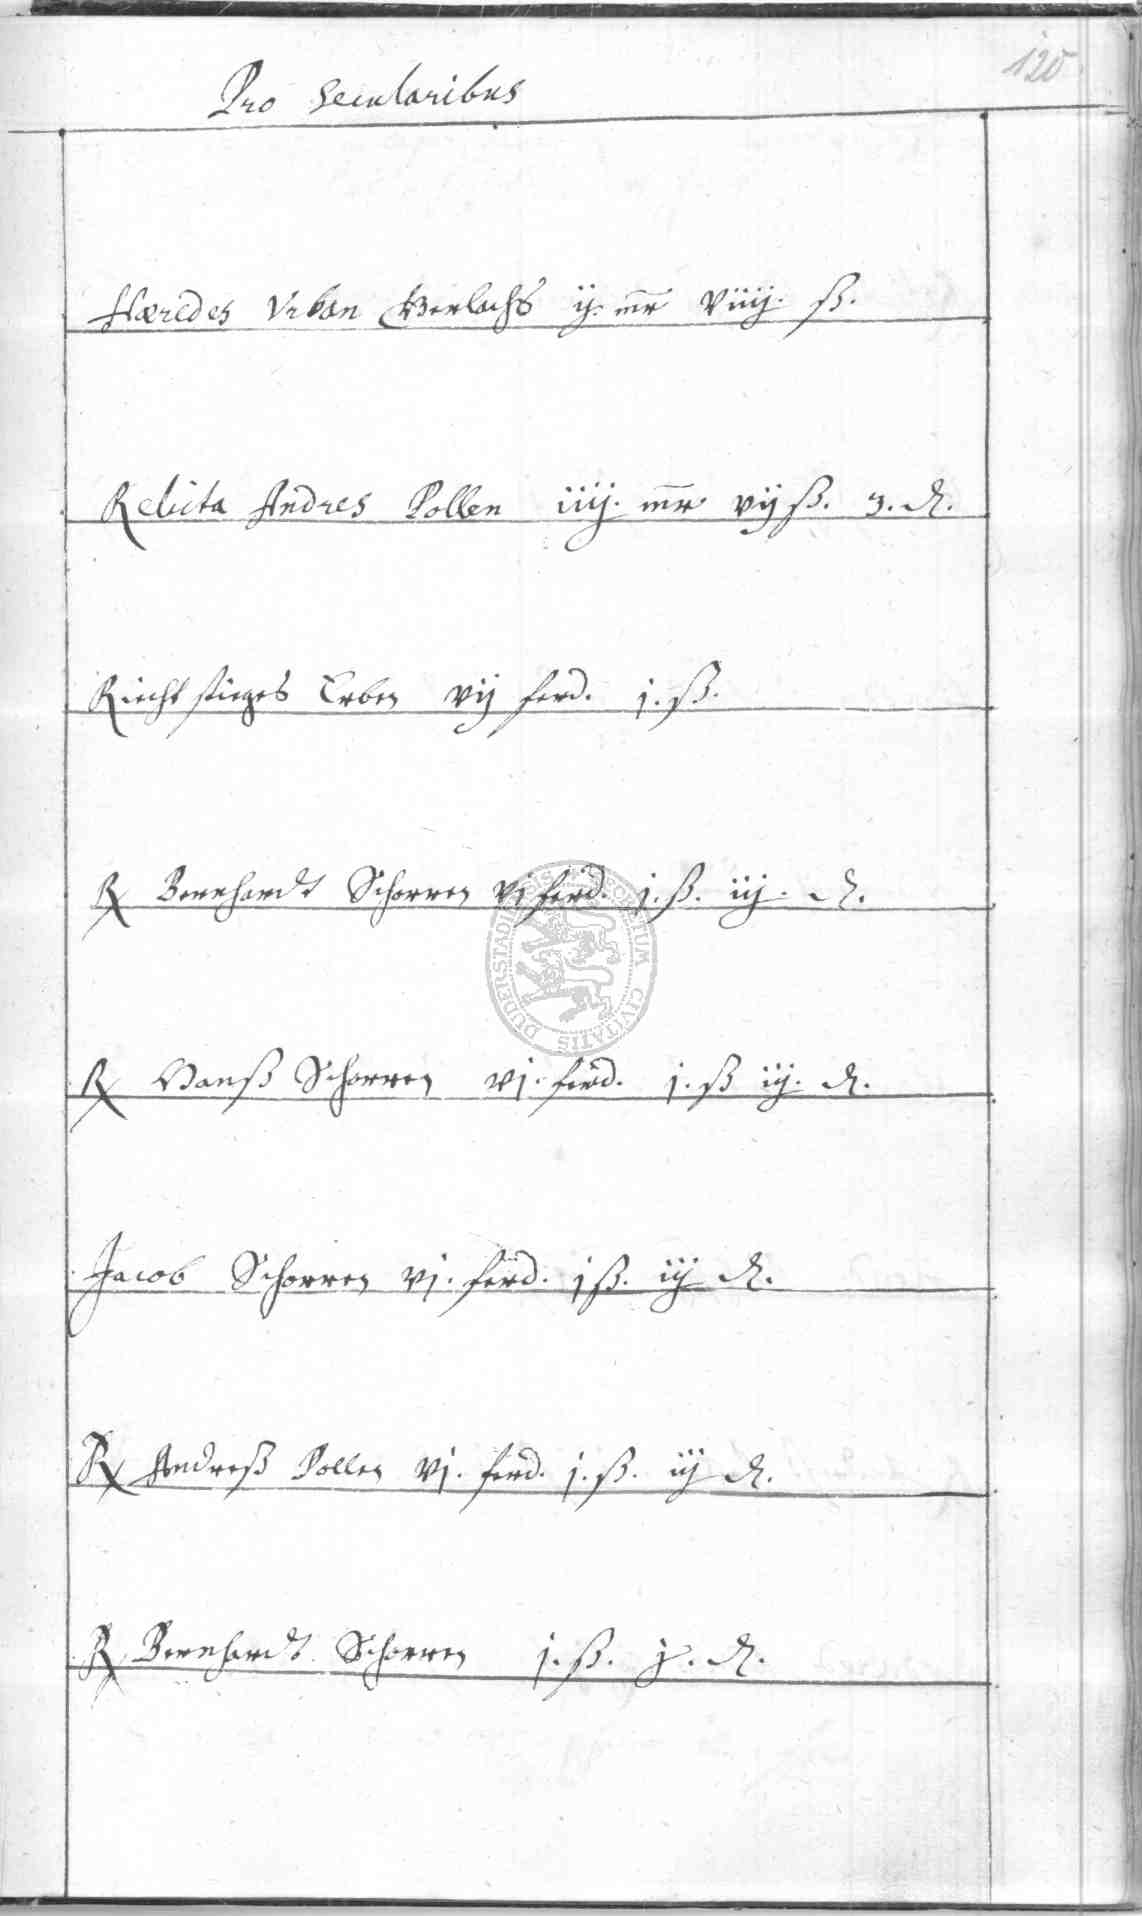 120
Pro Secularibus
Hæredes Vrban Gerlachs ij. mr viiij. ß.
Relicta Andres Pollen iiij. mr vij ß. 3. ₰.
Riechstieges Erben vij ferd. j. ß.
R Bernhardt Schorren vj ferd. j. ß. iij. ₰.
R Hanß Schorren vj. ferd. j. ß iij. ₰.
Jacob Schorren vj. ferd. j ß. iij ₰.
R Andreß Pollen vj. ferd. j. ß. iij ₰.
R Bernhardt Schorren j. ß. j. ₰.
DUDERSTADIENSIS SECRETUM CIVITATIS